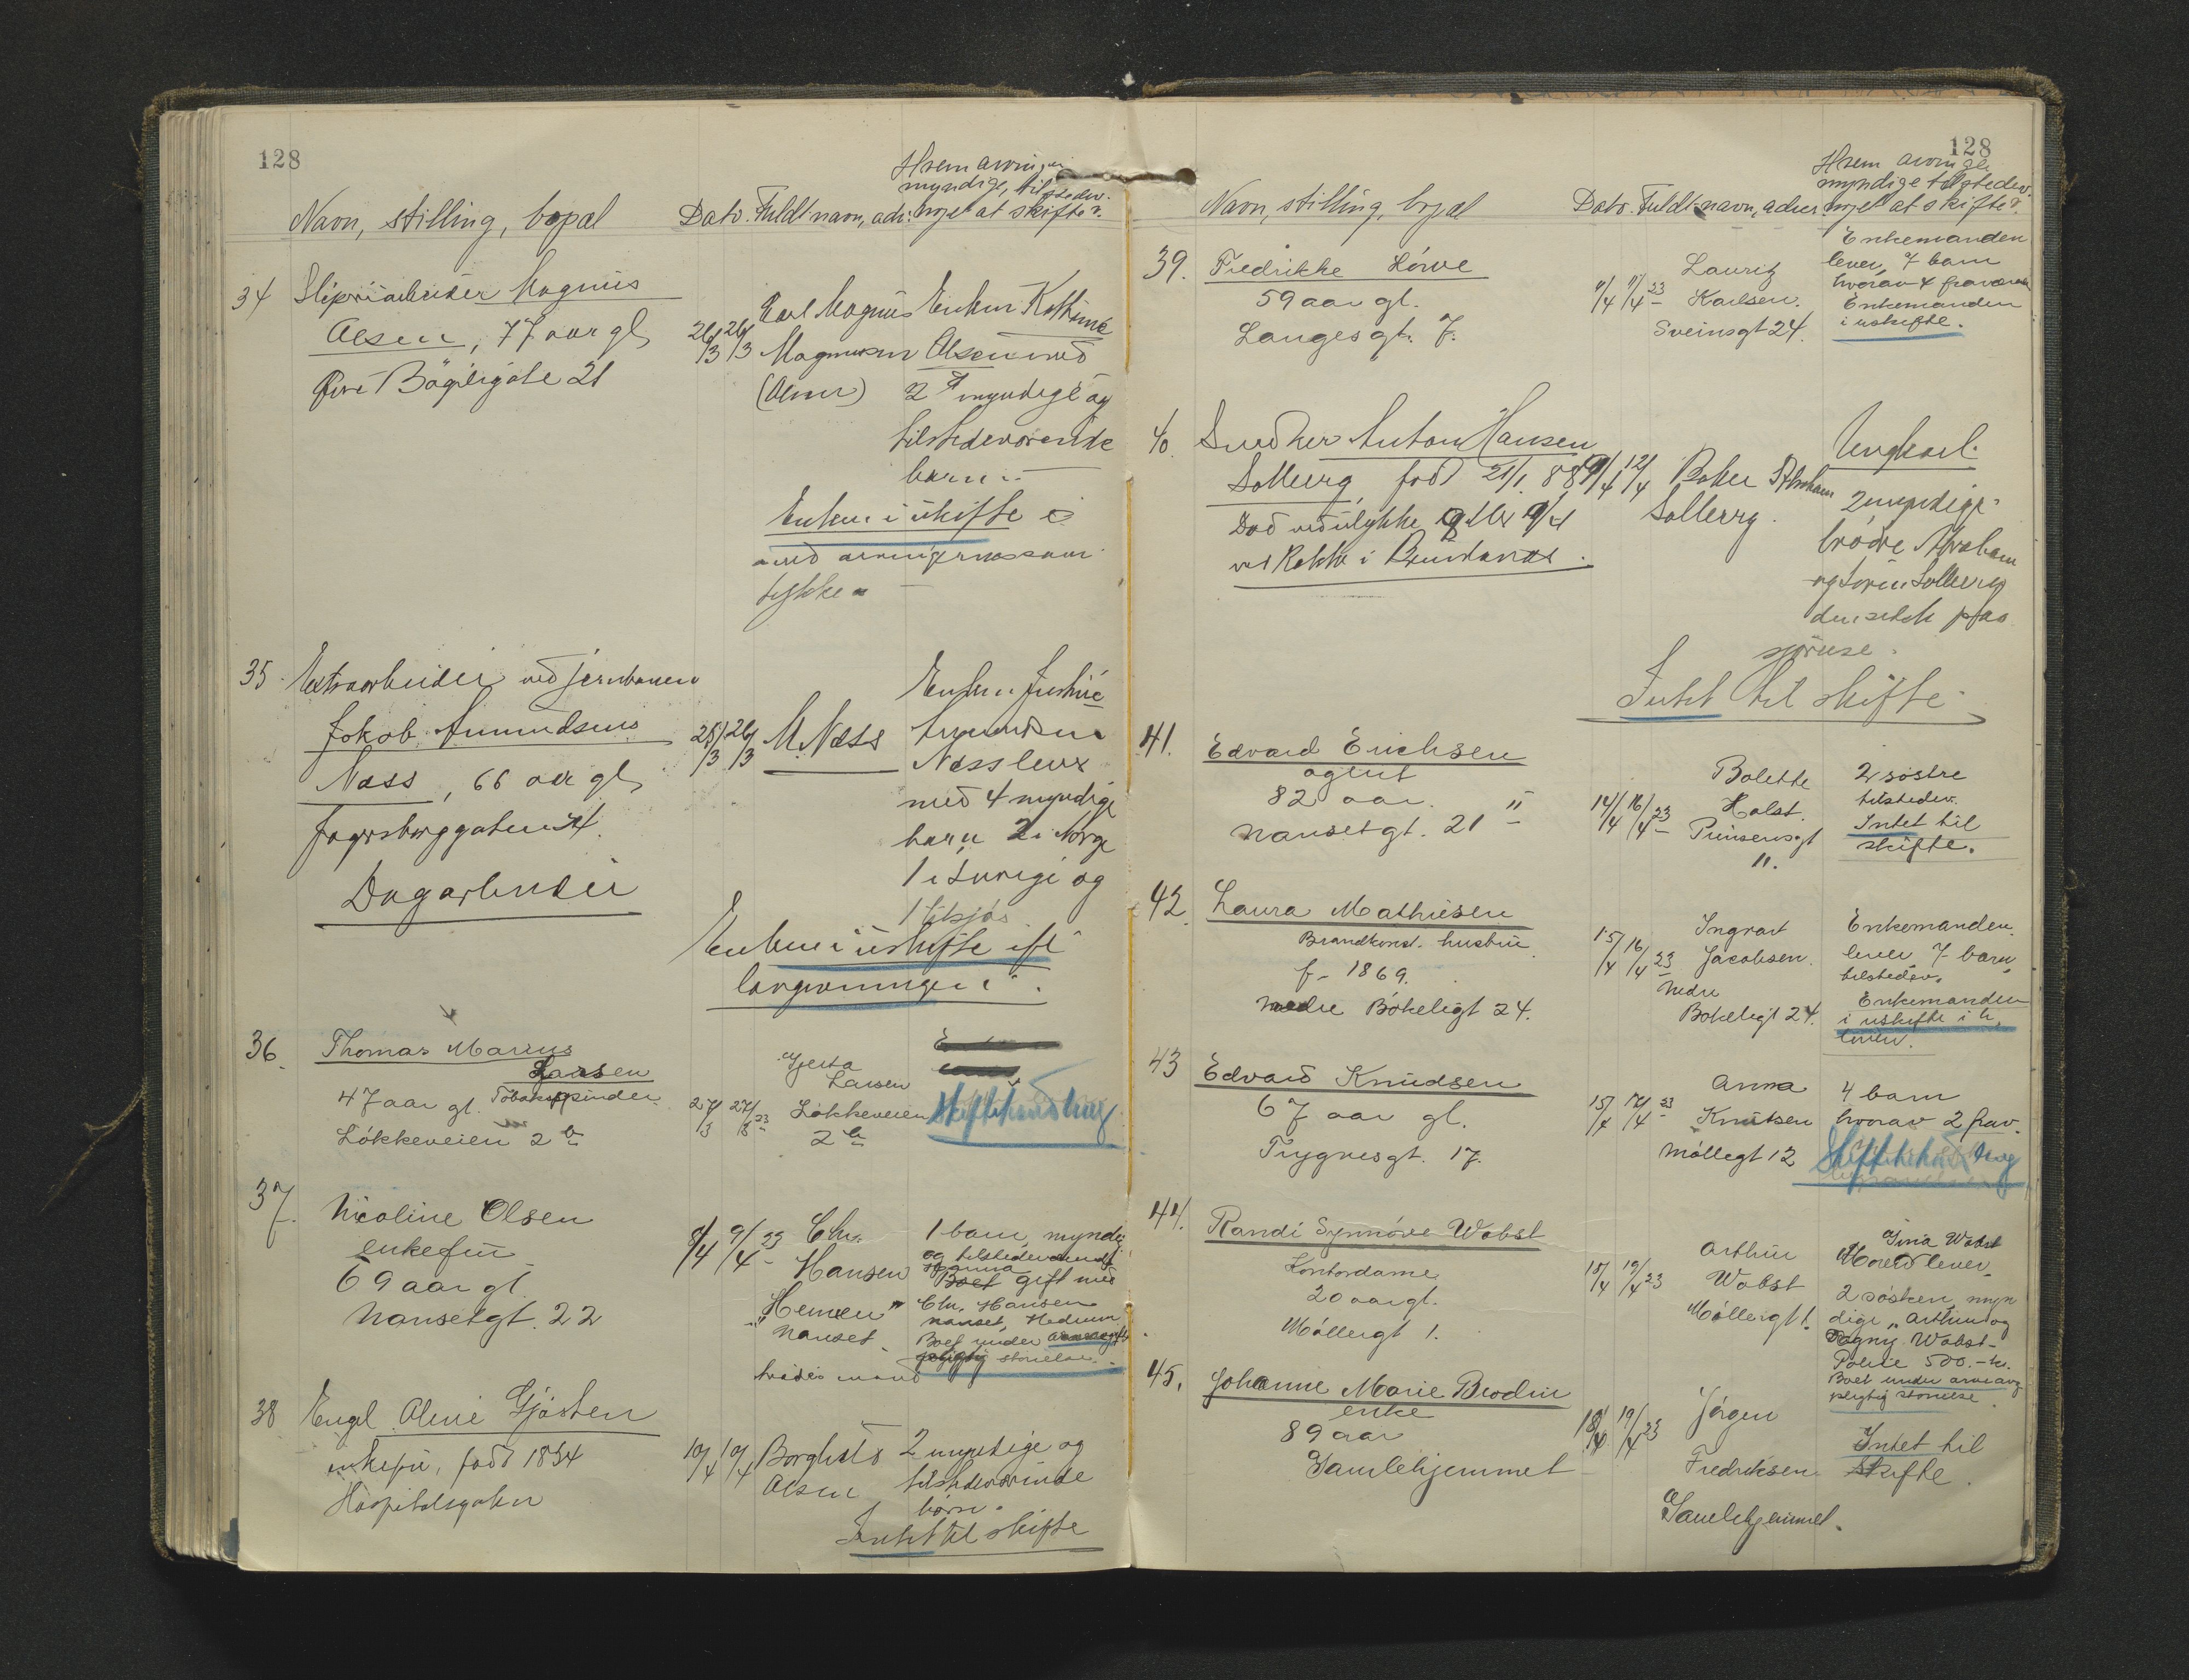 128
Navn, stilling, bopæl
Dato. Fuldt navn, adr.
Hvem arvinger
myndige, tilstedev.
noget at skifte?
34 Sliperiarbeider Magnus
Olsen, 77 aar gl.
Øvre Bøgeligate 21
26/3 26/3
Carl Magnus
Magnussen
(Olsen)
Enken Kathrine
Olsen med
2 myndige og
tilstedeværende
barn.
Enken i uskifte
med arvingernes sam
tykke
35. Extraarbeider ved jernbanen
Jakob Amundsens
Næss, 66 aar gl.
Dagarbeider
28/3 28/3
M. Næss
Enken
Amundsen
Næss lever
med 4 myndige
barn 2 i Norge
1 i Sverige og
1 tilsjøs
Enken i uskifte ifl
lovgivningen.
36. Thomas Marius
Larsen
47 aar gl. Tobakspinder.
Løkkeveien 2 b
27/3 27/3 23
Larsen
Løkkeveien
2 b
Skiftebehandling
37. Nicoline Olsen
enkefru
69 aar gl.
Nansetgt. 22
8/4 9/4 23
Chr.
Hansen
Nanset
1 barn, myndig
og tilstedeværende
Hanna
Boet gift med
Chr. Hansen
Nanset, Hedrum
Boet under arveavgifts
pligtig størrelse.
38 Engel Oline Gjøsten
enkefru, født 1834
Hospitalsgaten
10/4 10/4
Borghilds
Olsen
2 myndige og
tilstedeværende
børn.
Intet til skifte
128
Navn, stilling, bopæl
Dato. Fuldt navn, adr.
Hvem arvinge
myndige tilstedev.
noget at skifte?
39. Fredrikke Lórve
59 aar gl.
Langesgt. 7.
11/4 11/4 23
Lauritz
Karlsen.
Sveinsgt 24.
Enkemanden
lever, 7 barn
hvorav 4 fraværende
Enkemanden
i uskifte.
40. Snedker Anton Hansen
Solberg, født 21/1. 88
Død ved ulykke
12/4
Baker Abraham
Solberg.
Ungkarl.
2 myndige
brødre Abraham
og Søren Solberg
Intet til skifte
41. Edvard Erichsen
agent
82 aar.
Nansetgt. 21
14/4 16/4 23
Bolette
Holst.
Prinsensgt
11.
2 søstre
tilstedev.
Intet til
skifte.
42. Laura Mathiesen
Brandkonst. hustru
f. 1869.
Nedre Bøkeligt 24.
15/4 16/4 23
Ingvart
Jacobsen.
Nedre
Bøkeligt 24.
Enkemanden
lever, 7 barn,
tilstedev.
Enkemanden
i uskifte i h.
loven.
43 Edvard Knudsen
67 aar gl.
Trygvesgt. 17.
15/4 17/4 23
Anna
Knutsen
Møllegt 12
4 barn
hvorav 2 frav.
Skiftebehandling
44. Randi Synnöve Wobst
Kontordame
20 aar gl.
Møllergt 1.
18/4 19/4 23
Arthur
Wobst
Møllergt 1.
Gina Wobst
Mored lever.
2 søsken, myn
dige, Arthur og
Dagny Wobst
Police 500.- kr.
Boet under arveavg
pligtig størrelse.
45. Johanne Marie Brodin
enke
89 aar
Gamlehjemmet
18/4 19/4 23
Jørgen
Fredriksen
Gamlehjemmet.
Intet til
skifte.